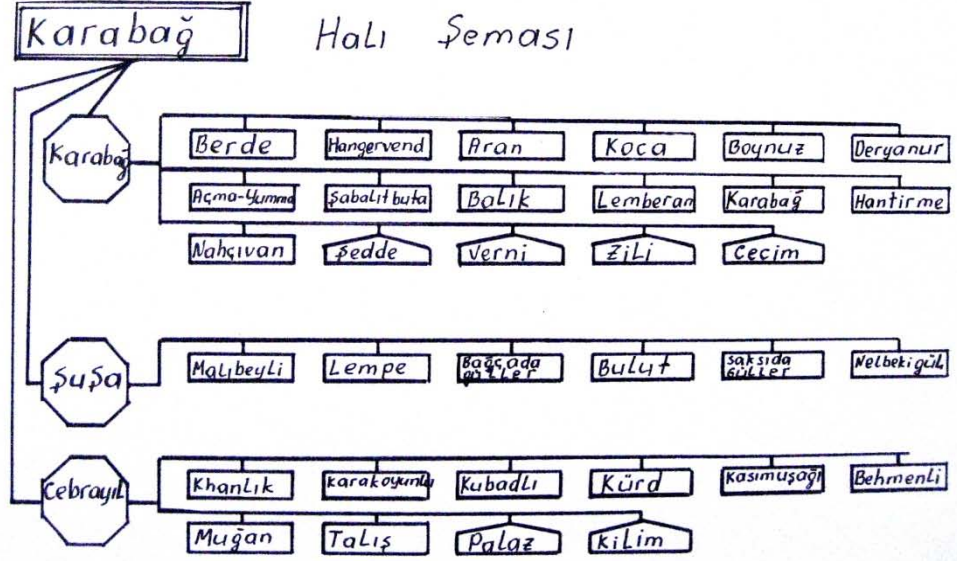 Karabağ Halı Şeması
Karabağ
Berde Hangervend Aran Koca Boynuz Deryanur
Açma-Yumma Şabalıt buta Balık Lemberan Karabağ Hantirme
Nahçıvan Şedde Verni Zili Cecim
Şuşa
Malıbeyli Lempe Bağçada güller Bulut saksıda Güller Nelbekigül
Cebrayıl
Khanlık Karakoyunlu Kubadlı Kürd Kasımuşağı Behmenli
Muğan Talış Palaz Kilim